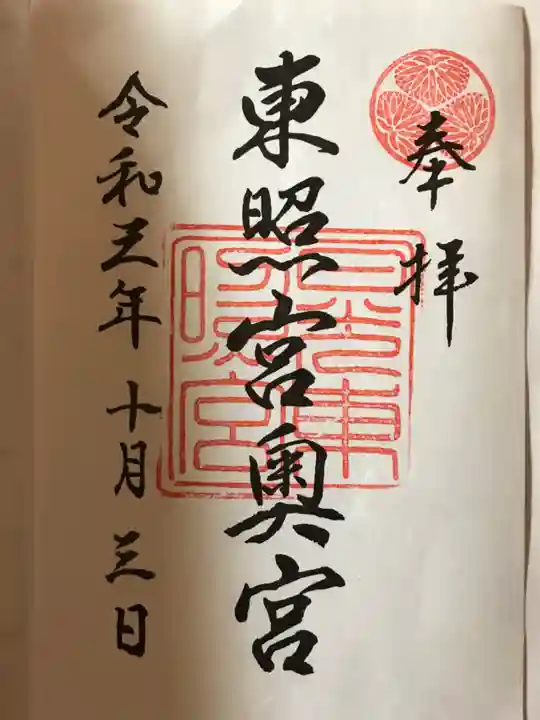 奉拝
東照宮奥宮
日光東照宮
令和三年十月三日